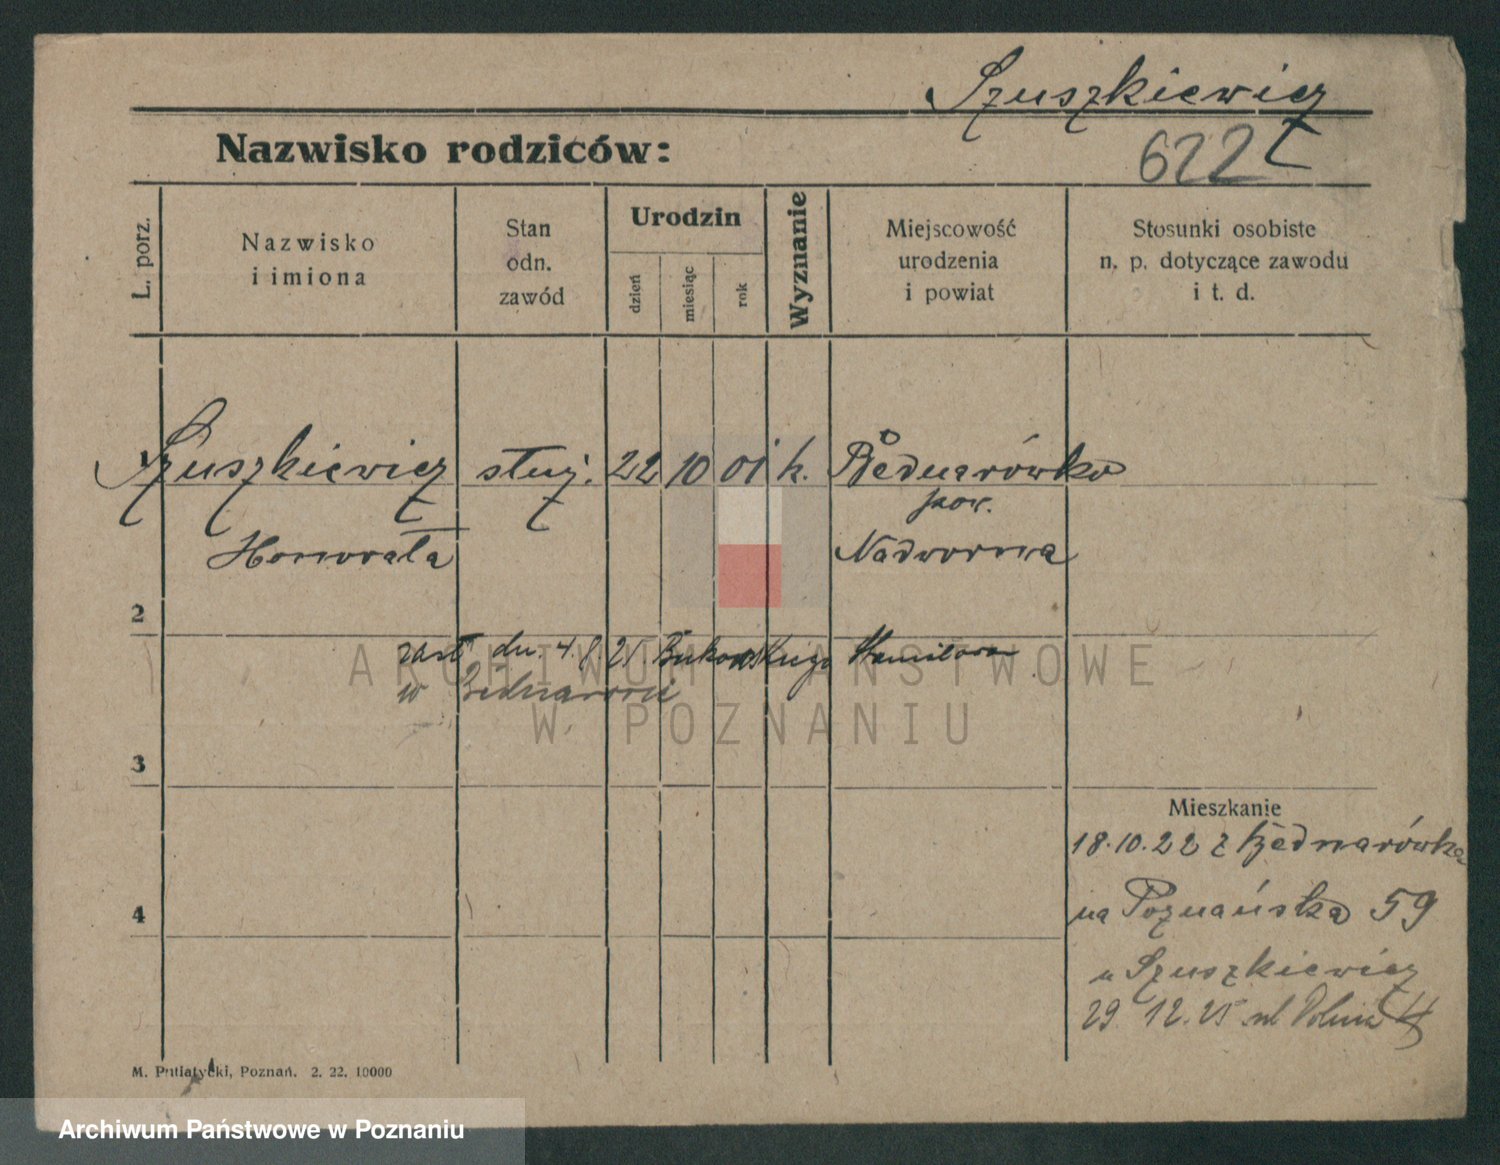 Szuszkiewicz
Nazwisko rodziców:
622
L. porz.
Nazwisko
i imiona
Stan
odn.
zawód
Urodzin
dzień
miesiąc
rok
Wyznanie
Miejscowość
urodzenia
i powiat
Stosunki osobiste
n. p. dotyczące zawodu
i t. d.
Szuszkiewicz służ. 22 10 01 k. Bednarówka
pow.
Honorata Nadworna
2
dn 4.8 25 Bukowskiego
w
ARCHIWUM PAŃSTWOWE
W POZNANIU
3
Mieszkanie
18.10.22 z Bednarówka
4
na Poznańska 59
u Szuszkiewicz
29 12. 25 ul
M. Putiatycki, Poznań. 2. 22. 10000
Archiwum Państwowe w Poznaniu